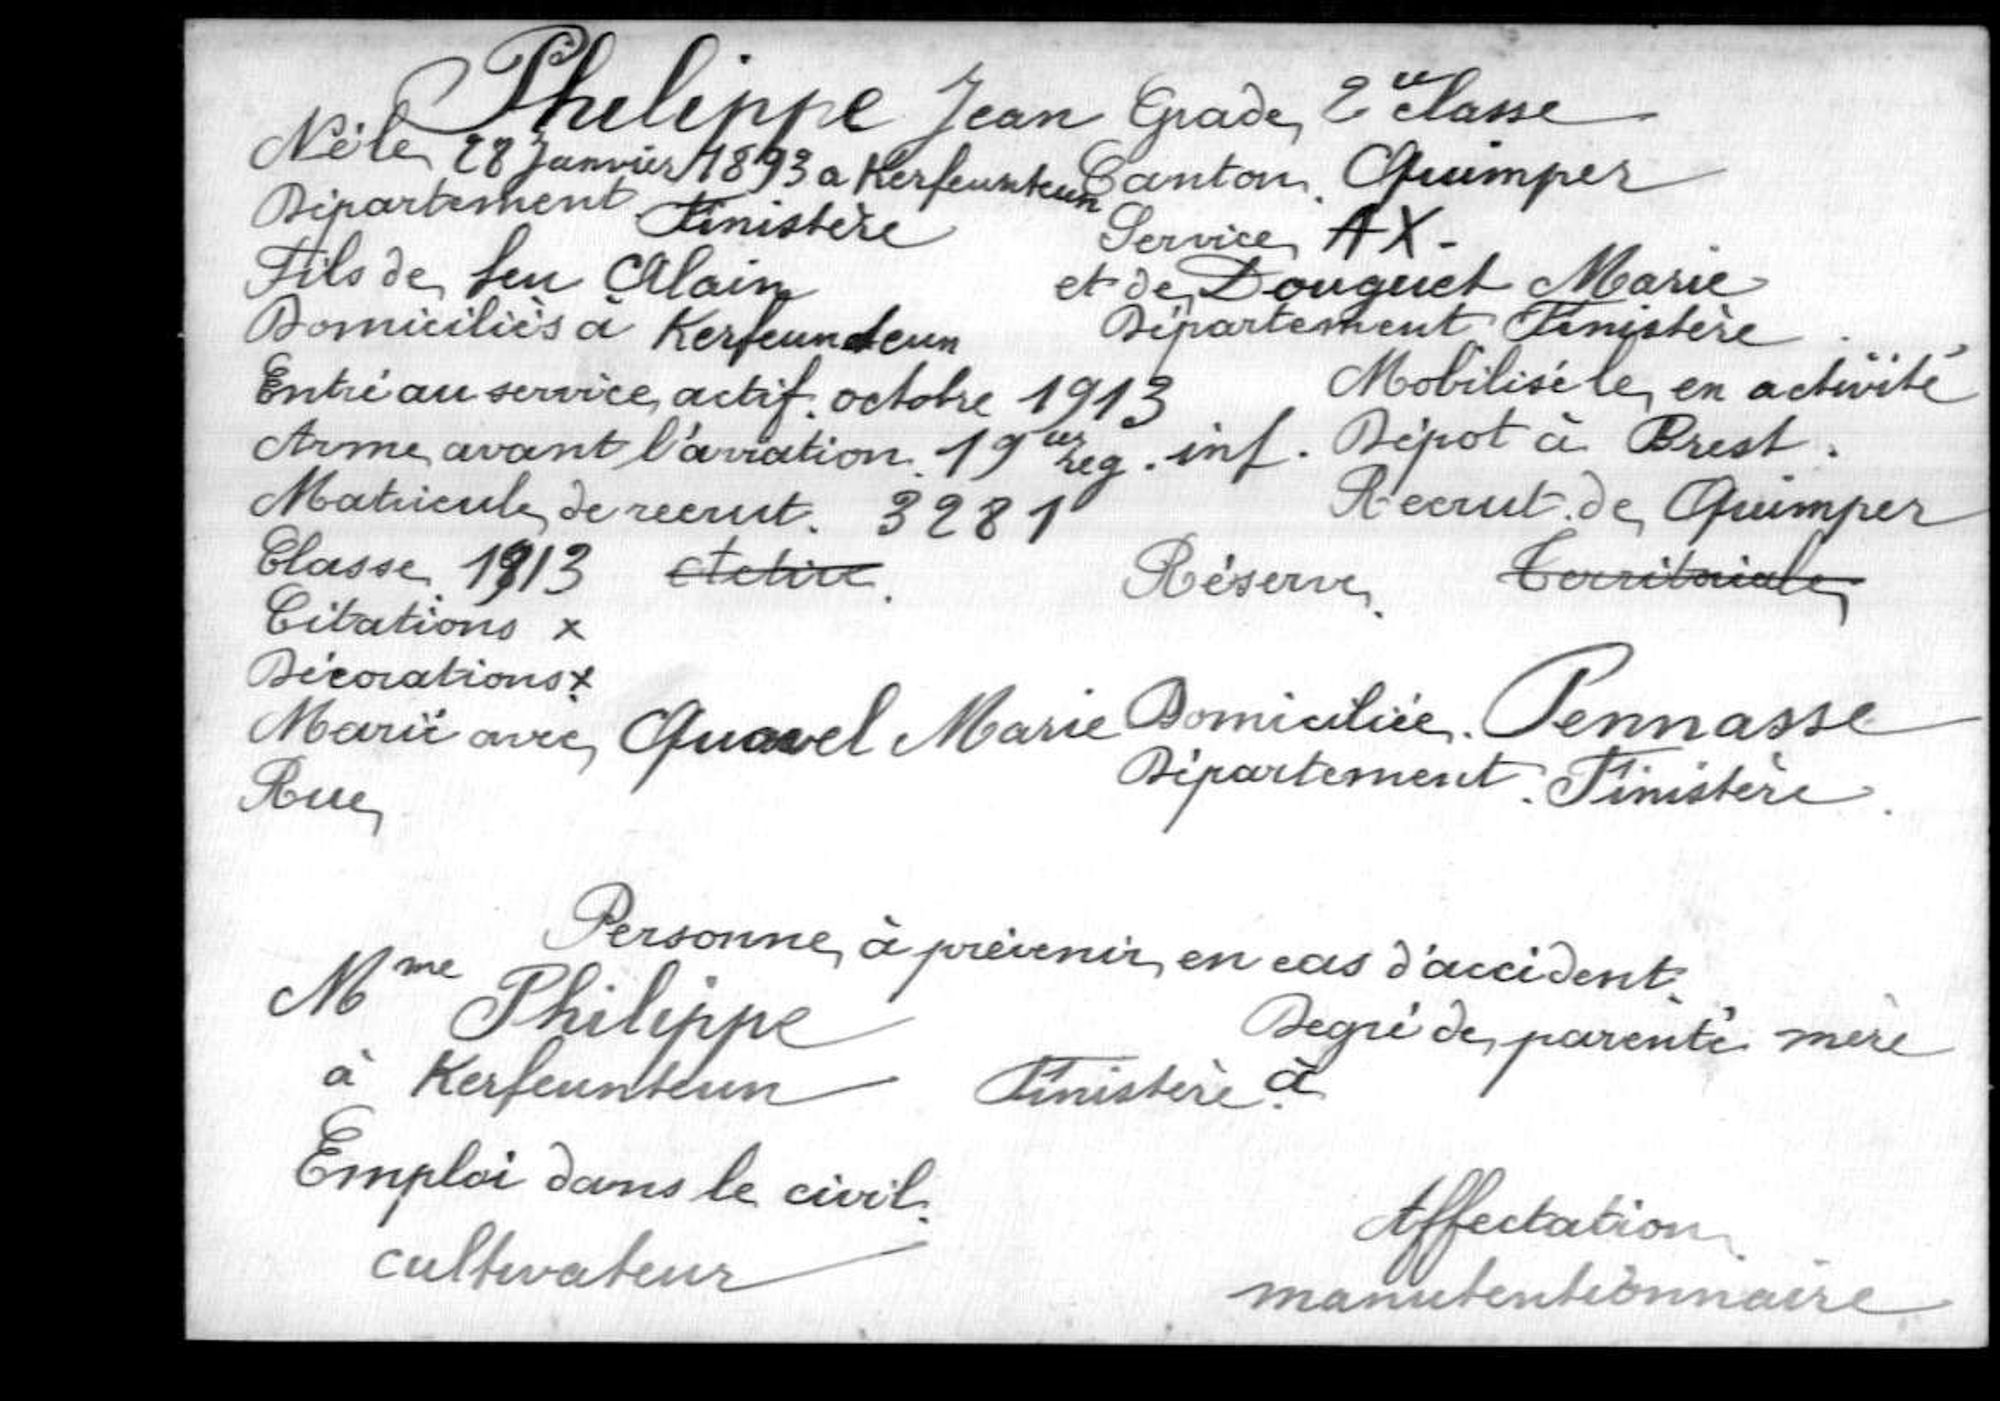 Philippe Jean Grade 2e classe
Né le 28 Janvier 1893 a Kerfeunteun Canton Quimper
Département Finistère Service AX -
Fils de feu Alain et de Douguet Marie
Domiciliés à Kerfeunteun Département Finistère
Entré au service actif. octobre 1913 Mobilisé le en activité
Arme avant l'aviation. 19 reg. inf. Dépot à Brest.
Matricule de recrut. 3281 Recrut. de Quimper
Classe 1913 Active Réserve Territoriale
Citations x
Décorations x
Marié avec Marie Domiciliée. Pennasse
Rue Département. Finistère
Personne à prévenir en cas d'accident.
Mme Philippe Degré de parenté mère
à Kerfeunteun Finistère à
Emploi dans le civil. Affectation
cultivateur manutentionnaire